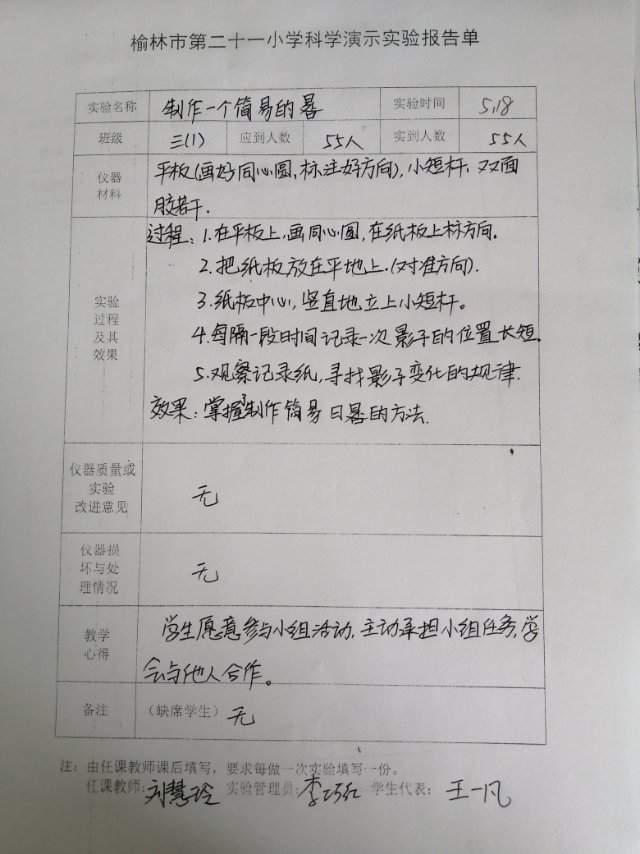 榆林市第二十一小学科学演示实验报告单
实验名称 制作一个简易的晷 实验时间 5.18
班级 三(1) 应到人数 55人 实到人数 55人
仪器材料 平板(画好同心圆,标注好方向),小短杆,双面
胶若干.
实验过程及其效果
过程:1.在平板上,画同心圆,在纸板上标方向.
2.把纸板放在平地上.(对准方向).
3.纸板中心,竖直地立上小短杆。
4.每隔一段时间记录一次影子的位置长短.
5.观察记录纸,寻找影子变化的规律.
效果:掌握制作简易日晷的方法.
仪器质量或实验改进意见 无
仪器损坏与处理情况 无
教学心得 学生愿意参与小组活动,主动承担小组任务,学
会与他人合作。
备注 (缺席学生) 无
注:由任课教师课后填写,要求每做一次实验填写一份。
任课教师:刘慧玲 实验管理员:李巧红 学生代表:王一凡